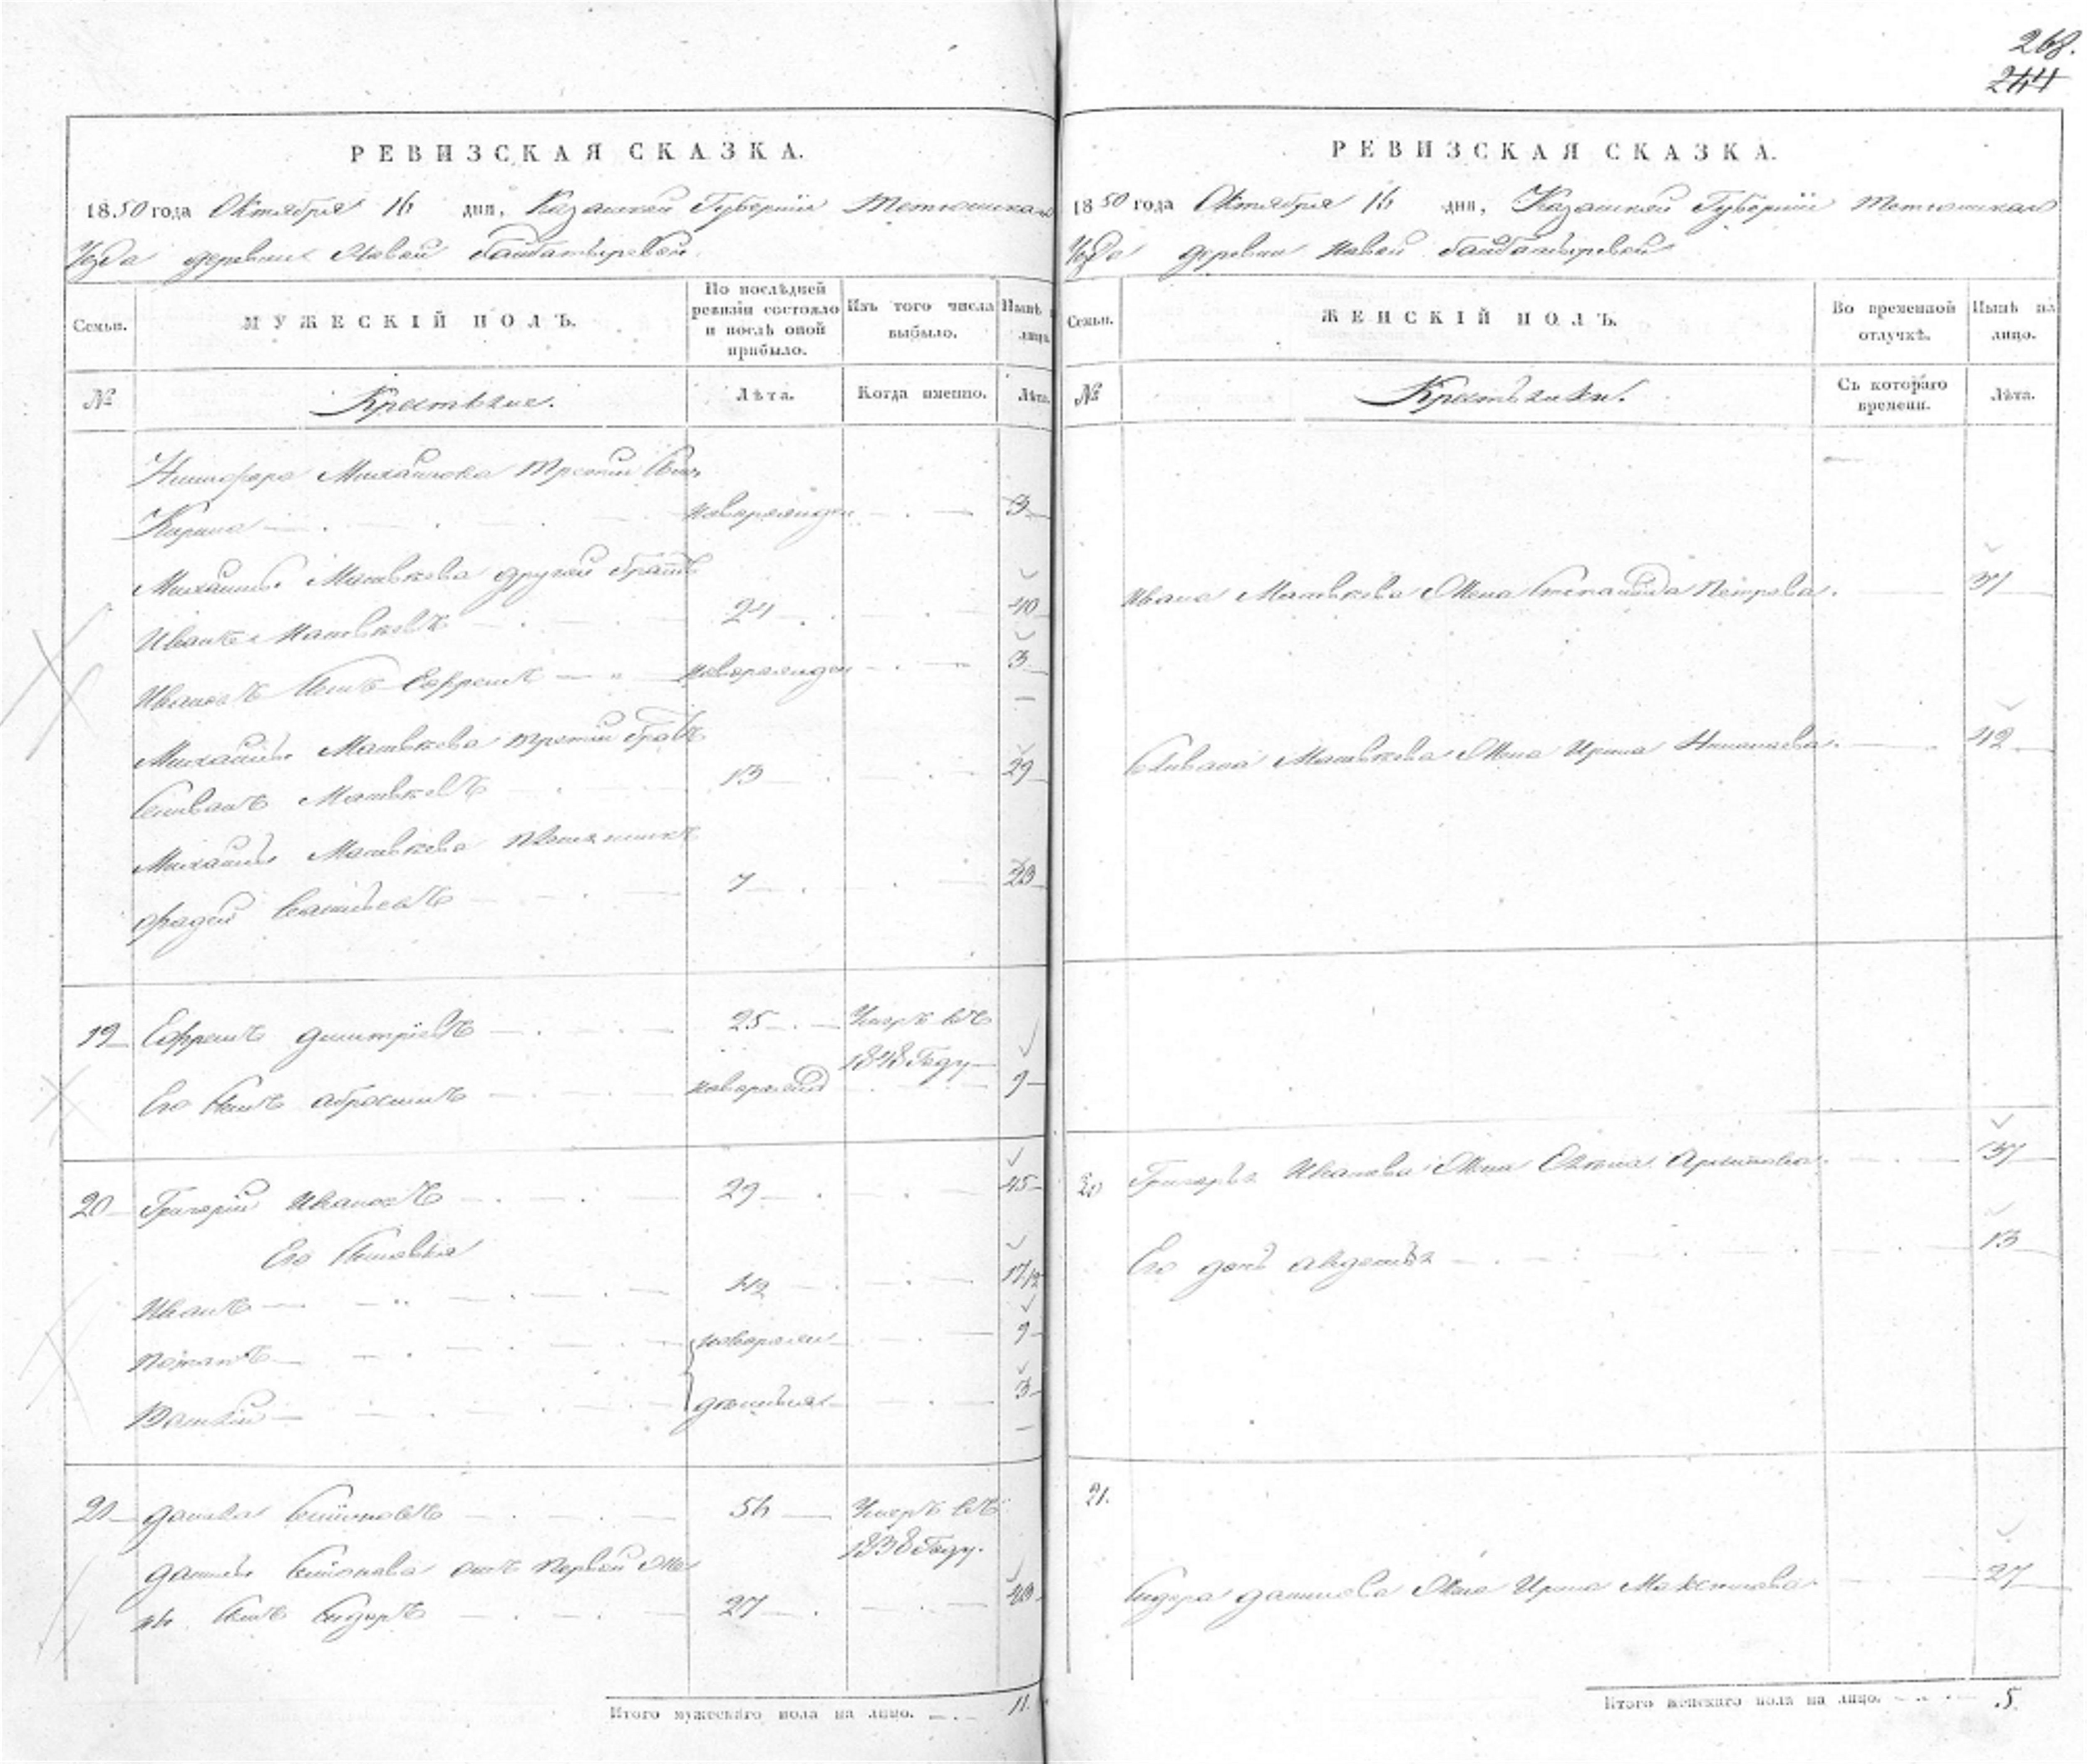 268.
244
РЕВИЗСКАЯ СКАЗКА.
1850 года Октября 16 дня, Казанской Губернии Тетюшскаго
Уезда деревни Новой Байбатыревой
Семьи.
МУЖЕСКІЙ ПОЛЪ.
По послѣдней ревизіи состояло и послѣ оной прибыло.
Изъ того числа выбыло.
Нынѣ на лицо.
№
Крестьяне.
Лѣта.
Когда именно.
Лѣта.
Михайлова третій Сынъ
новорожден 3
Михайлы Матвѣева другой братъ
Иванъ Матвѣевъ 24 40
Ивановъ Сынъ Ефремъ новорожден 3
Михайлы Матвѣева третій братъ
Селиванъ Матвѣевъ 13 29
Михайлы Матвѣева племянникъ
Фадей Васильевъ 7 23
19 Ефремъ Дмитріевъ 25 Умеръ въ
1848 Году
Его Сынъ Абросимъ новорожд 9
20 Григорій Ивановъ 29 45
Его Сыновья
Иванъ 1/2
новорож 9
3
21 Данила 56 Умеръ въ
1838 Году.
Данилы отъ первой же
ны Сынъ Сидоръ 27 43
Итого мужескаго пола на лицо. 11.
РЕВИЗСКАЯ СКАЗКА.
1850 года Октября 16 дня, Казанской Губерніи Тетюшскаго
Уезда деревни Новой Байбатыревой
Семьи.
ЖЕНСКІЙ ПОЛЪ.
Во временной отлучкѣ.
Нынѣ на лицо.
№
Крестьянки.
Съ котораго времени.
Лѣта.
Ивана Матвѣева Жена Степанида Петрова. 37
Селивана Матвѣева Жена Ирина Николаева. 42
20 Григорья Иванова Жена Елена Архипова. 37
Его дочь Авдотья 13
21.
Сидора Данилова Жена Ирина Максимова 27
Итого женскаго пола на лицо. 5.